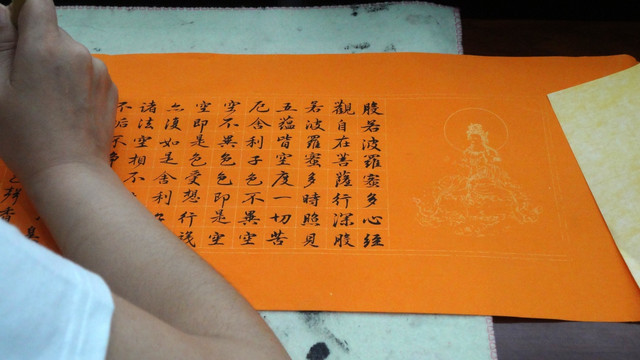 般若波羅蜜多心經
觀自在菩薩行深般
若波羅蜜多時照見
五蘊皆空度一切苦
厄舍利子色不異空
空不異色色即是空
空即是色受想行識
亦復如是舍利
諸法空相不
不垢不